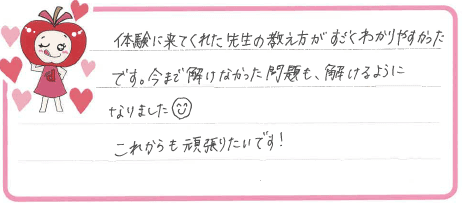 体験に来てくれた先生の教え方がすごくわかりやすかった
です。今まで解けなかった問題も、解けるように
なりました
これからも頑張りたいです!